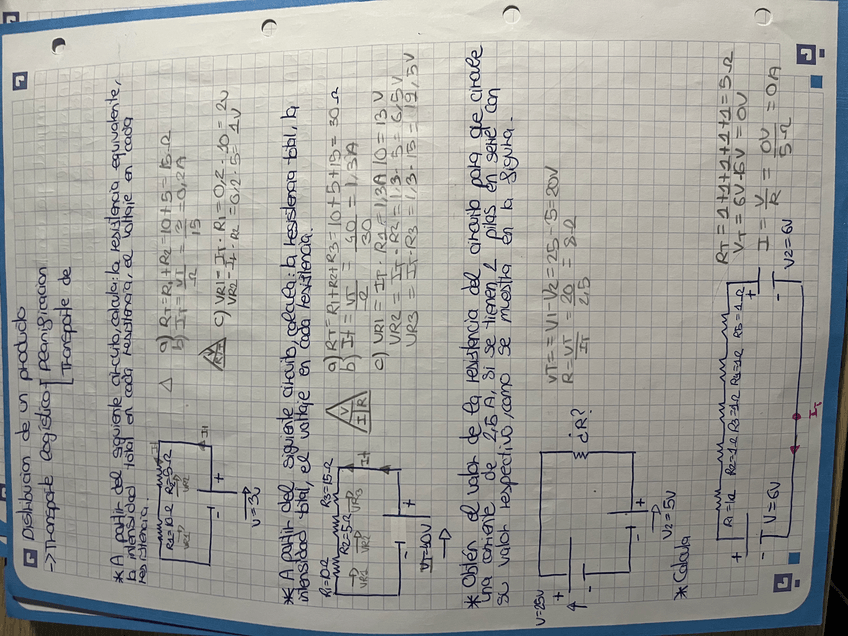 Distribución de un producto
-> Transporte Logística Planificación
Transporte de
* A partir del siguiente circuito, calcula: la resistencia equivalente,
la intensidad total en cada resistencia, el voltaje en cada
resistencia.
R1=10Ω R2=5Ω
VR1 VR2
It
- +
V=3V
a) RT=R1+R2=10+5=15Ω
b) IT= VT/Ω = 3/15 =0,2A
c) VR1=IT·R1=0,2·10=2V
VR2=It·R2=0,2·5=1V
* A partir del siguiente circuito, calcula: la resistencia total, la
intensidad total, el voltaje en cada resistencia.
R1=10Ω R2=5Ω R3=15Ω
VR2 VR2 VR3
It
- +
VT=40V
V
I R
a) RT=R1+R2+R3=10+5+15=30Ω
b) It= VT/Ω = 40/30 = 1,3A
c) VR1 = IT·R1=1,3A·10=13V
VR2 = IT·R2=1,3·5=6,5V
VR3 = IT·R3=1,3·15=19,5V
* Obtén el valor de la resistencia del circuito para que circule
una corriente de 2,5A, si se tienen 2 pilas en serie con
su valor respectivo, como se muestra en la figura.
V=25V
+ -
¿R?
- +
V2=5V
VT==V1-V2=25-5=20V
R= VT/IT = 20/2,5 = 8Ω
* Calcula
R1=1Ω R2=1Ω R3=1Ω R4=1Ω R5=1Ω
+ -
V=6V
+ -
V2=6V
IT
RT=1+1+1+1+1=5Ω
VT=6V-6V=0V
I= V/R = 0V/5Ω =0A